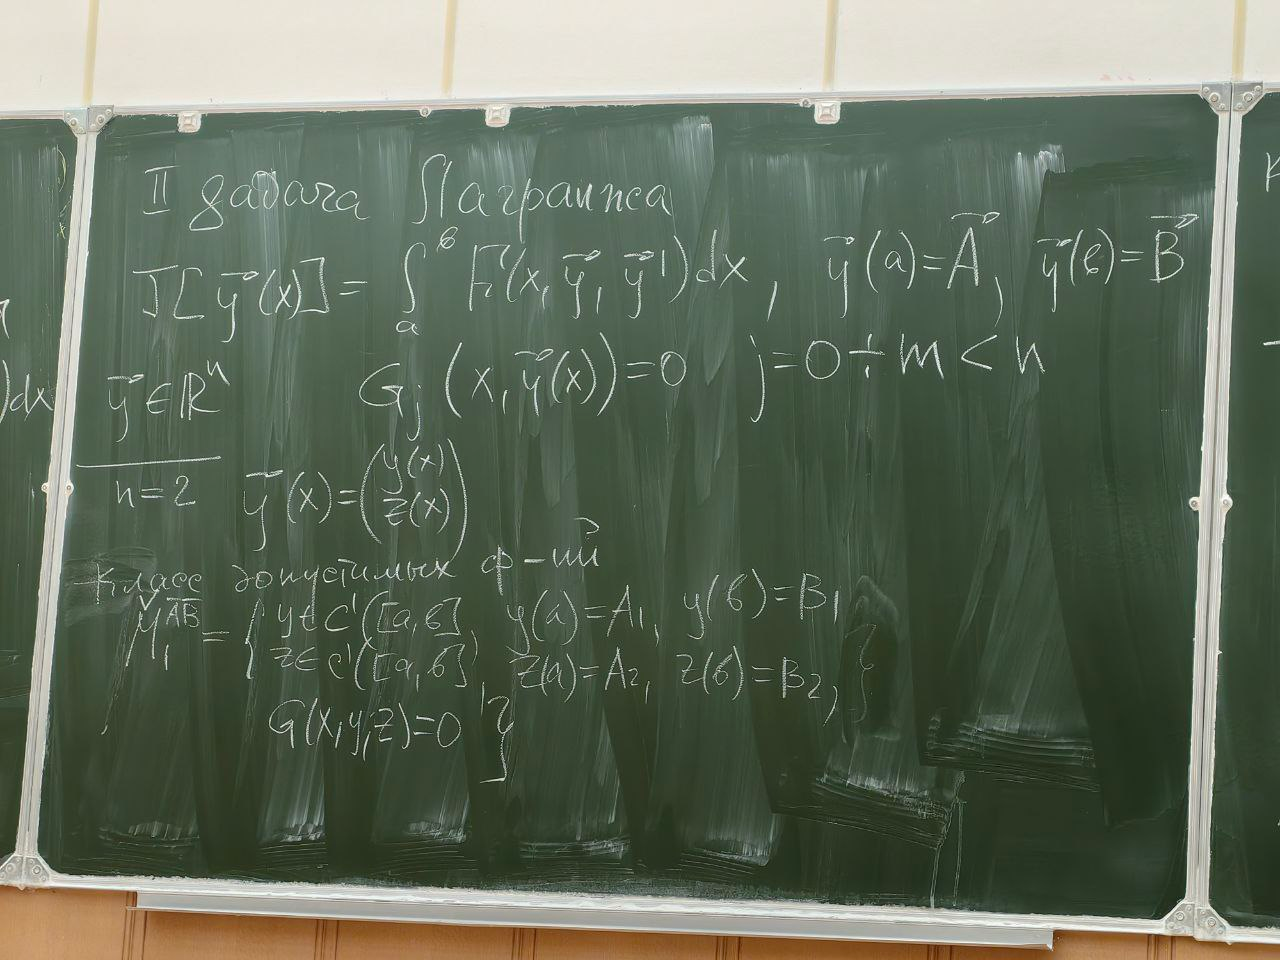 )dx
II задача Лагранжа
J[y⃗(x)] = ∫ₐᵇ F(x, y⃗, y⃗')dx, y⃗(a)=A⃗, y⃗(b)=B⃗
y⃗∈ℝⁿ Gⱼ(x, y⃗(x))=0 j=0÷m<n
n=2 y⃗(x)=(y(x)
z(x))
Класс допустимых ф-ий
M₁ᴬᴮ = { y∈C'([a,b], y(a)=A₁, y(b)=B₁
z∈C'([a,b], z(a)=A₂, z(b)=B₂, }
G(x,y,z)=0 }